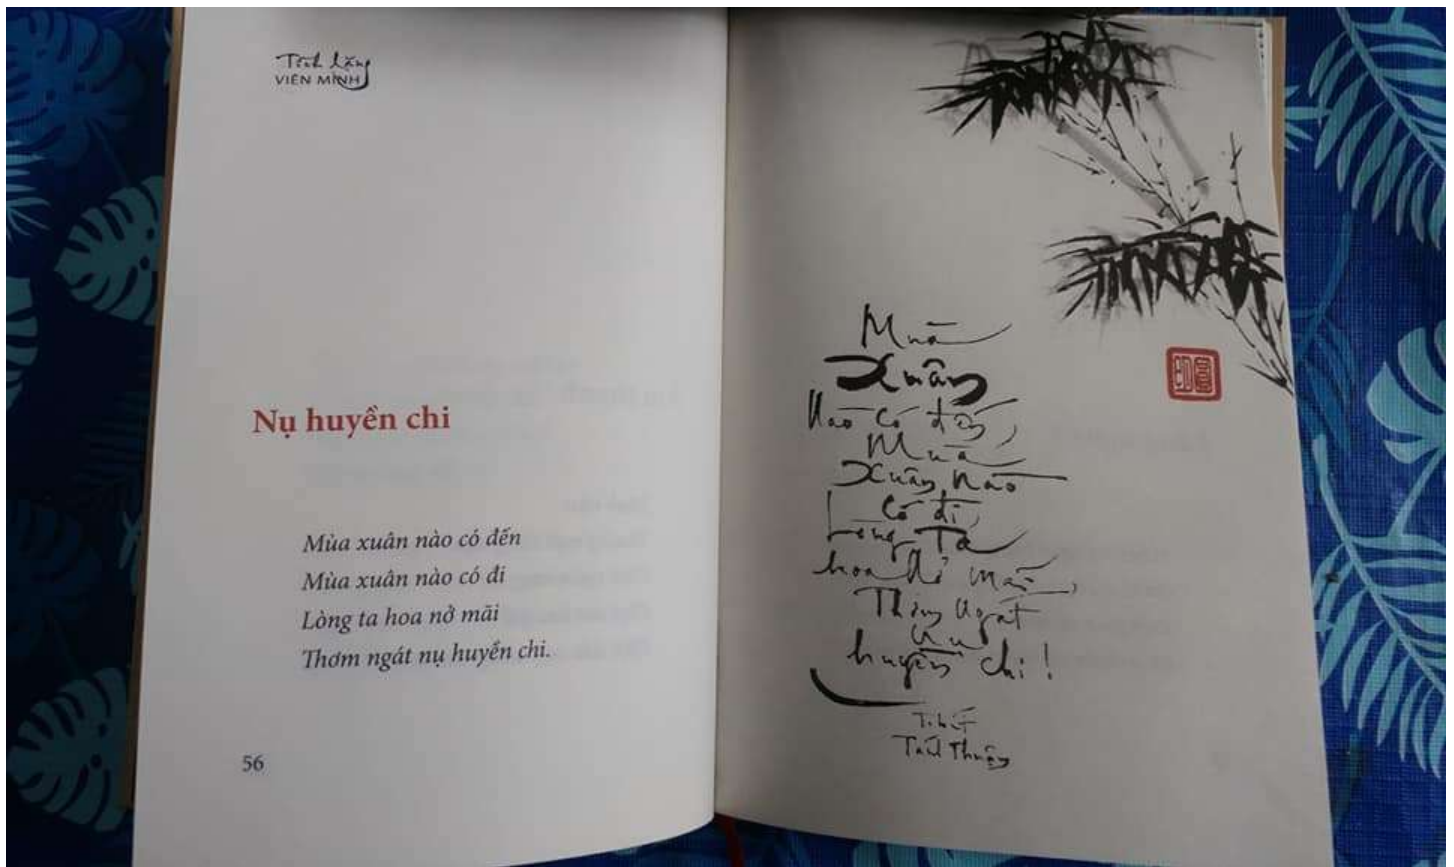 Tĩnh lặng
VIÊN MINH
Nụ huyền chi
Mùa xuân nào có đến
Mùa xuân nào có đi
Lòng ta hoa nở mãi
Thơm ngát nụ huyền chi.
56
Mùa
Xuân
Nào có đến,
Mùa
Xuân Nào
Có đi,
Lòng Ta
hoa nở mãi,
Thơm Ngát
Nụ
huyền chi!